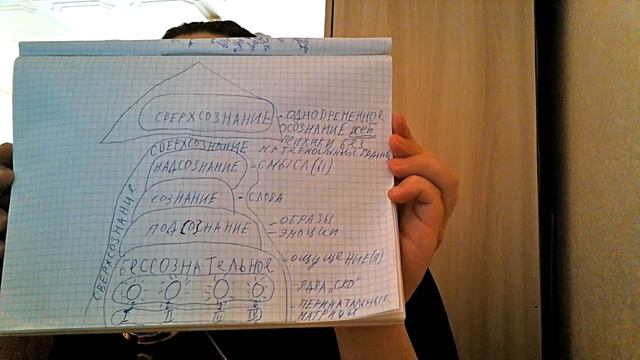 СВЕРХСОЗНАНИЕ - ОДНОВРЕМЕННОЕ
ОСОЗНАНИЕ ВСЕЙ
ПСИХИКИ БЕЗ
СВЕРХСОЗНАНИЕ
НАДСОЗНАНИЕ - СМЫСЛ(Ы)
СОЗНАНИЕ - СЛОВА
ПОДСОЗНАНИЕ - ОБРАЗЫ
- ЭМОЦИИ
СВЕРХСОЗНАНИЕ
БЕССОЗНАТЕЛЬНОЕ - ОЩУЩЕНИЕ(Я)
- ЯДРА "СКО"
- ПЕРИНАТАЛЬНЫЕ
МАТРИЦЫ
I II III IV